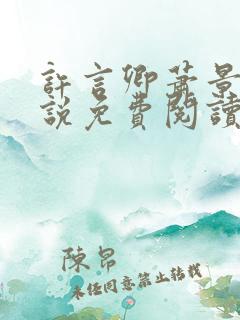 許言卿蕭景
說免費閱讀
陳昂
未經同意禁止轉載